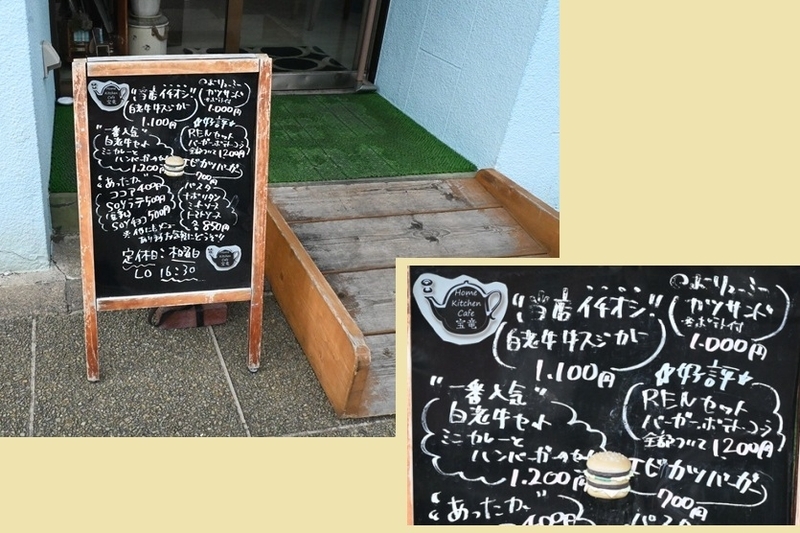 Home
Kitchen
Cafe
宝竜
"当店イチオシ!!
白老牛牛スジカレー
1.100円
"一番人気"
白老牛セット
ミニカレーと
ハンバーガーのセット
1.200円
"あったか〜
ココア400円
SOYラテ500円
(豆乳)
SOYチョコ500円
※他にもメニュー
あります お気軽にどうぞ!!
定休日:木曜日
LO 16:30
ボリューミー
カツサンド
1.000円
☆好評☆
RENセット
バーガー・ポテト・コーラ
全部ついて1200円
エビカツバーガー
700円
パスタ
ナポリタン
ミートソース
トマトソース
各850円
Home
Kitchen
Cafe
宝竜
"当店イチオシ!!
白老牛牛スジカレー
1.100円
"一番人気"
白老牛セット
ミニカレーと
ハンバーガーのセット
1.200円
"あったか〜
400円
ボリューミー
カツサンド
1.000円
☆好評☆
RENセット
バーガー・ポテト・コーラ
全部ついて1200円
エビカツバーガー
700円
パスタ